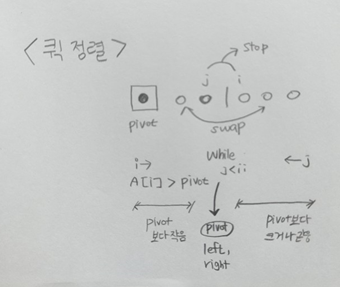 <퀵 정렬>
stop
j i
pivot
swap
While
i→ j<i; ←j
A[i] > pivot
pivot pivot pivot보다
보다작음 크거나같음
left,
right